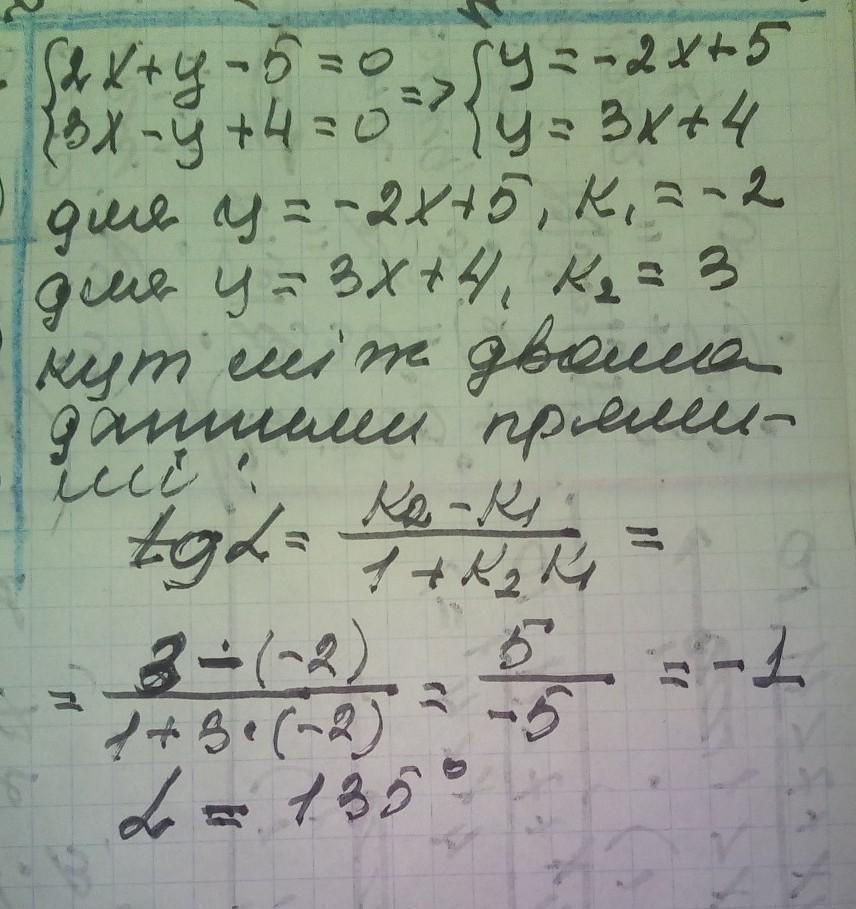 {2x+y-5=0 {3x-y+4=0 => {y=-2x+5 {y=3x+4
для y=-2x+5, K₁=-2
для y=3x+4, K₂=3
кут між двома
даними прями-
ми:
tgα = (K₂-K₁)/(1+K₂K₁) =
= (3-(-2))/(1+3·(-2)) = 5/-5 = -1
α = 135°